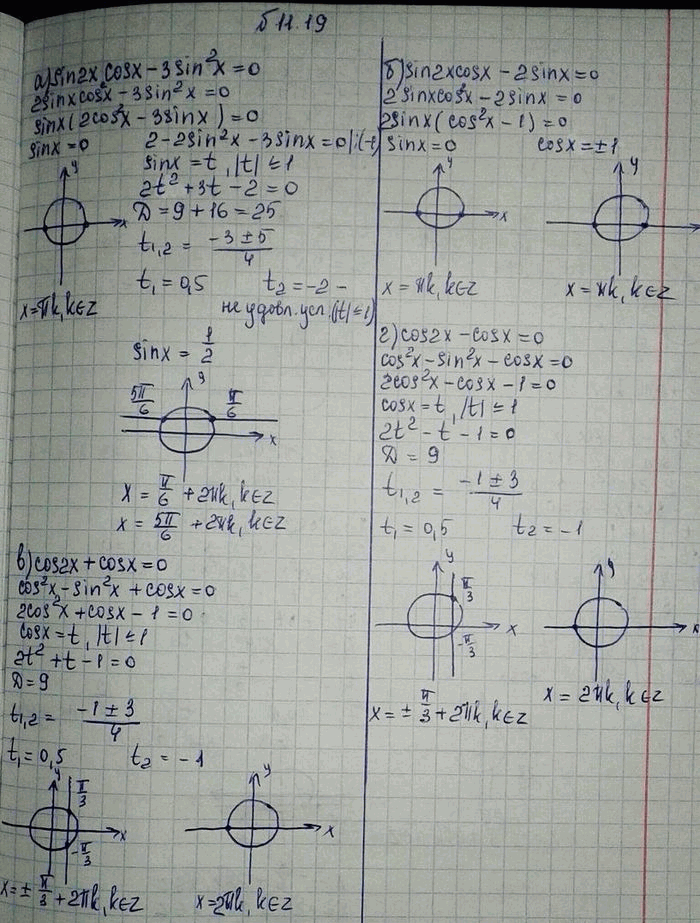 Б 11.19
а) sin2x cosx - 3sin²x = 0
2sinxcos²x - 3sin²x = 0
sinx(2cos²x - 3sinx) = 0
sinx = 0 2 - 2sin²x - 3sinx = 0 |:(-1)
sinx = t, |t| ≤ 1
2t² + 3t - 2 = 0
D = 9 + 16 = 25
t₁,₂ = (-3 ± 5)/4
t₁ = 0,5 t₂ = -2 -
не удовл. усл. (|t| ≤ 1)
y
x
x = πk, k∈Z
sinx = 1/2
y
5π/6 π/6
x
x = π/6 + 2πk, k∈Z
x = 5π/6 + 2πk, k∈Z
в) cos2x + cosx = 0
cos²x - sin²x + cosx = 0
2cos²x + cosx - 1 = 0
cosx = t, |t| ≤ 1
2t² + t - 1 = 0
D = 9
t₁,₂ = (-1 ± 3)/4
t₁ = 0,5 t₂ = -1
y π/3 y
x x
-π/3
x = ± π/3 + 2πk, k∈Z x = 2πk, k∈Z
б) sin2xcosx - 2sinx = 0
2sinxcos²x - 2sinx = 0
2sinx(cos²x - 1) = 0
sinx = 0 cosx = ±1
y y
x
x = πk, k∈Z x = πk, k∈Z
г) cos2x - cosx = 0
cos²x - sin²x - cosx = 0
2cos²x - cosx - 1 = 0
cosx = t, |t| ≤ 1
2t² - t - 1 = 0
D = 9
t₁,₂ = (-1 ± 3)/4
t₁ = 0,5 t₂ = -1
y π/3 y
x x
-π/3
x = ± π/3 + 2πk, k∈Z x = 2πk, k∈Z